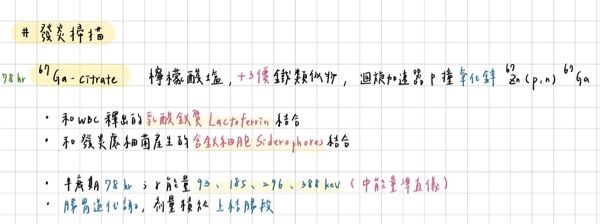 # 發炎掃描
78 hr ⁶⁷Ga-citrate 檸檬酸塩, +3價鐵類似物, 迴旋加速器 p 撞 氧化鋅 ⁶⁷Zn (p,n) ⁶⁷Ga
· 和 WBC 釋出的乳酸鐵質 Lactoferrin 結合
· 和 發炎處細菌產生的含鐵細胞 Siderophores 結合
· 半衰期 78 hr ; γ 能量 93、185、296、388 keV (中能量準直儀)
· 脾胃造代謝, 劑量積於 上結腸段